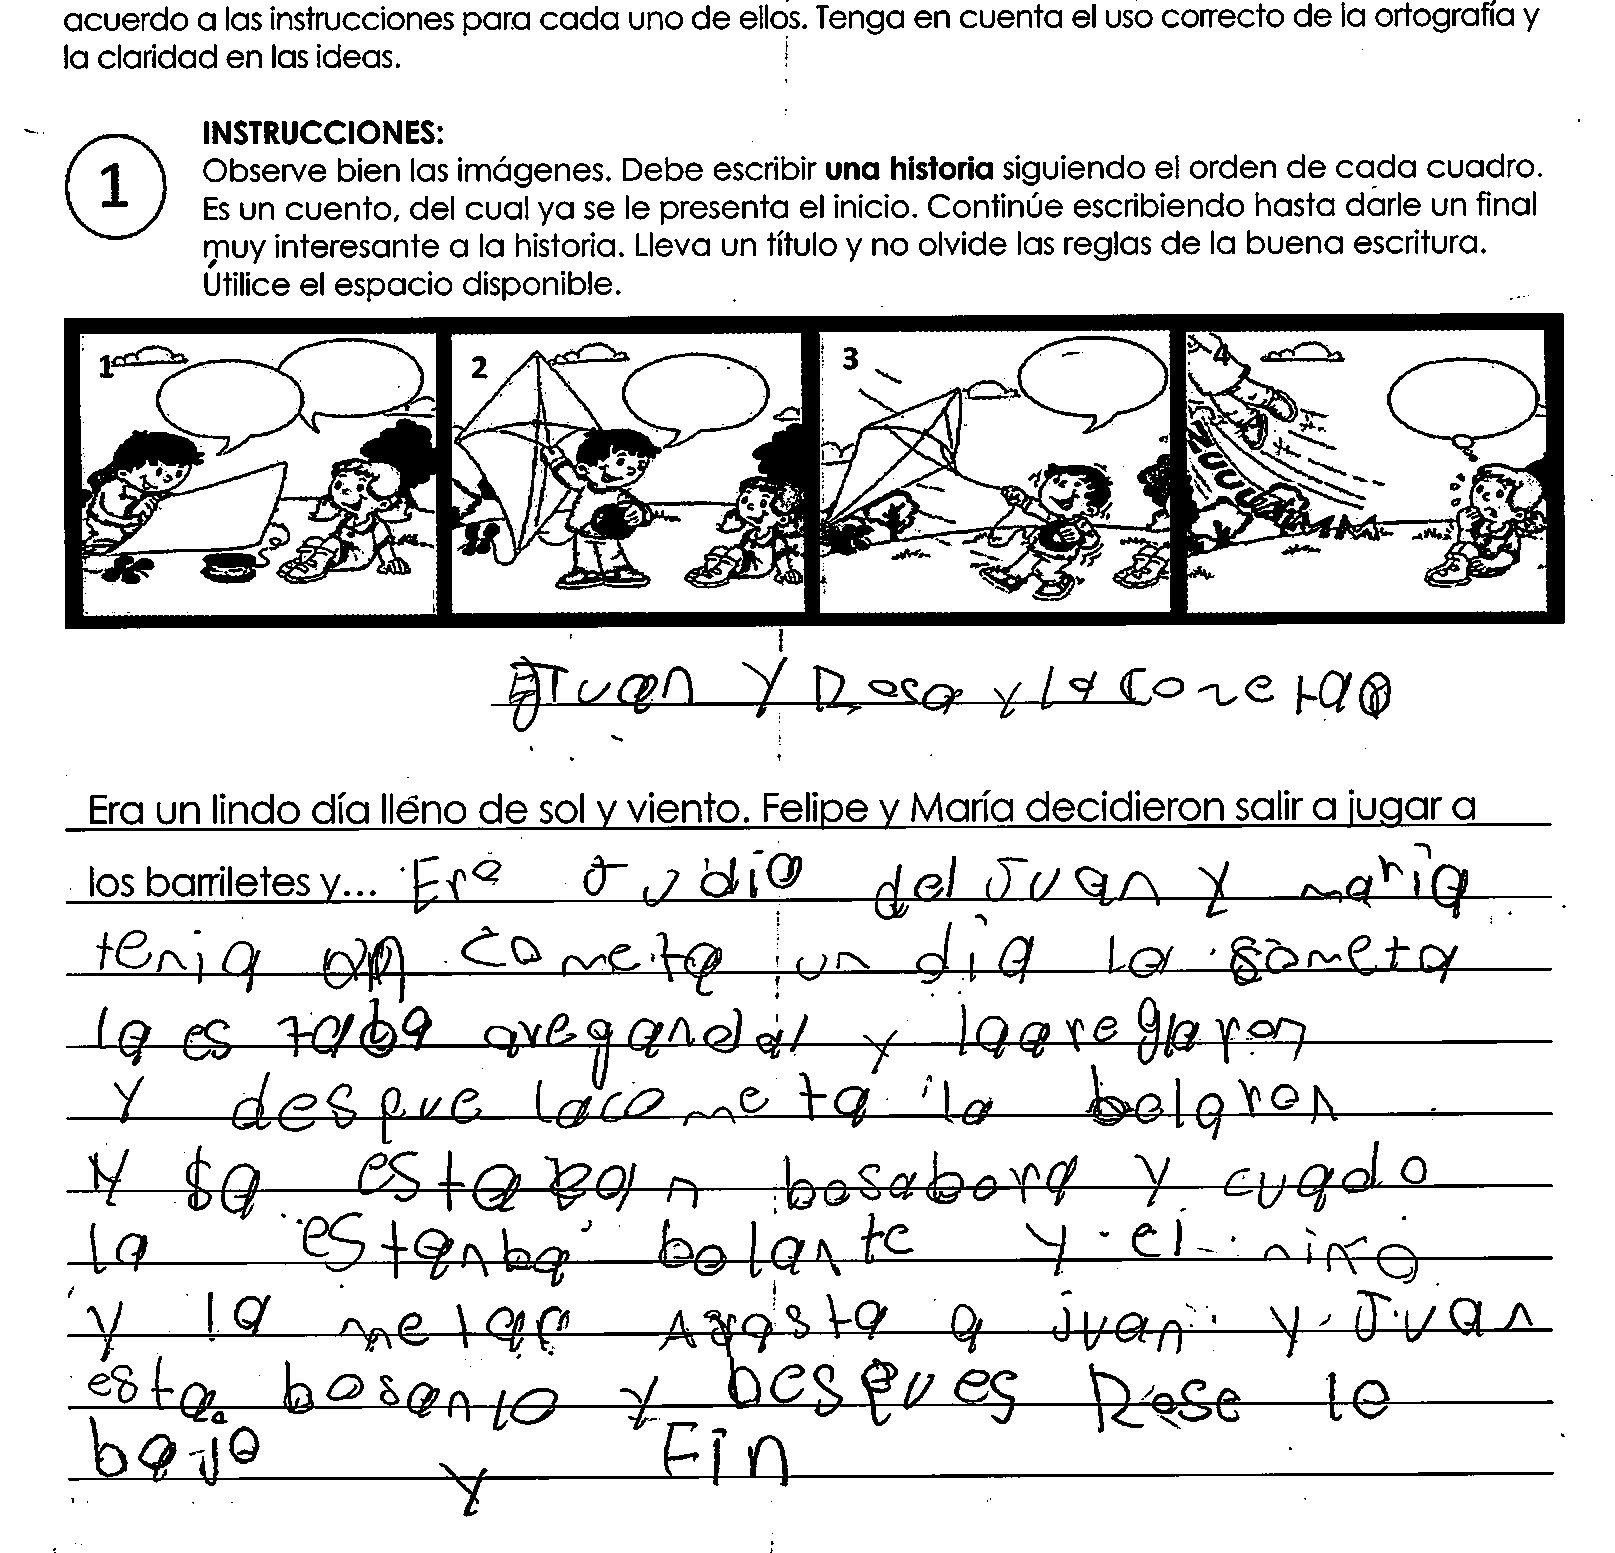 acuerdo a las instrucciones para cada uno de ellos. Tenga en cuenta el uso correcto de la ortografía y
la claridad en las ideas.
1
INSTRUCCIONES:
Observe bien las imágenes. Debe escribir una historia siguiendo el orden de cada cuadro.
Es un cuento, del cual ya se le presenta el inicio. Continúe escribiendo hasta darle un final
muy interesante a la historia. Lleva un título y no olvide las reglas de la buena escritura.
Útilice el espacio disponible.
1 2 3 4
Juan y Rosa y la
Era un lindo día lleno de sol y viento. Felipe y María decidieron salir a jugar a
los barriletes y... Era dia del Juan y maria
tenia cometa un dia la someta
la es taba y laareglaron
y despue lacometa la bolaron
y estaban y cuado
la estanba bolante y el niño
y la a juan y Juan
esta y bespues Rose lo
bajo y Fin